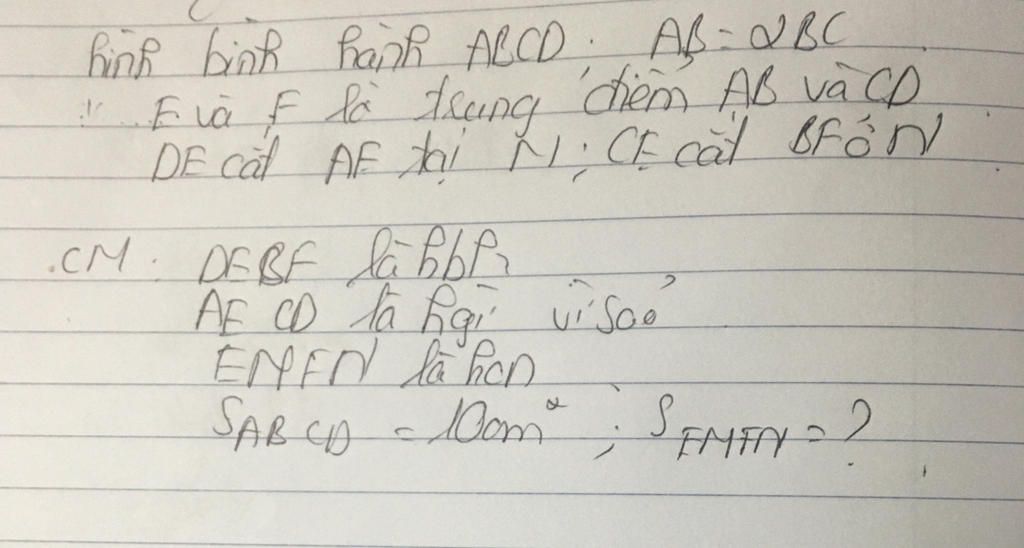 hình bình hành ABCD. AB = 2BC
E và F là trung điểm AB và CD
DE cắt AF tại N; CE cắt BF ở N
CM: DEBF là hbh
AECD là hgì vì sao?
EMFN là hcn
SABCD = 10cm²; SEMFN = ?